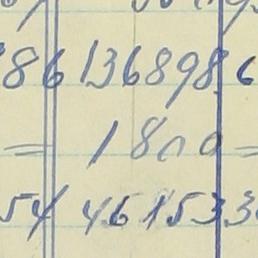 86 136898 6
= 1800 =
54 46153 3